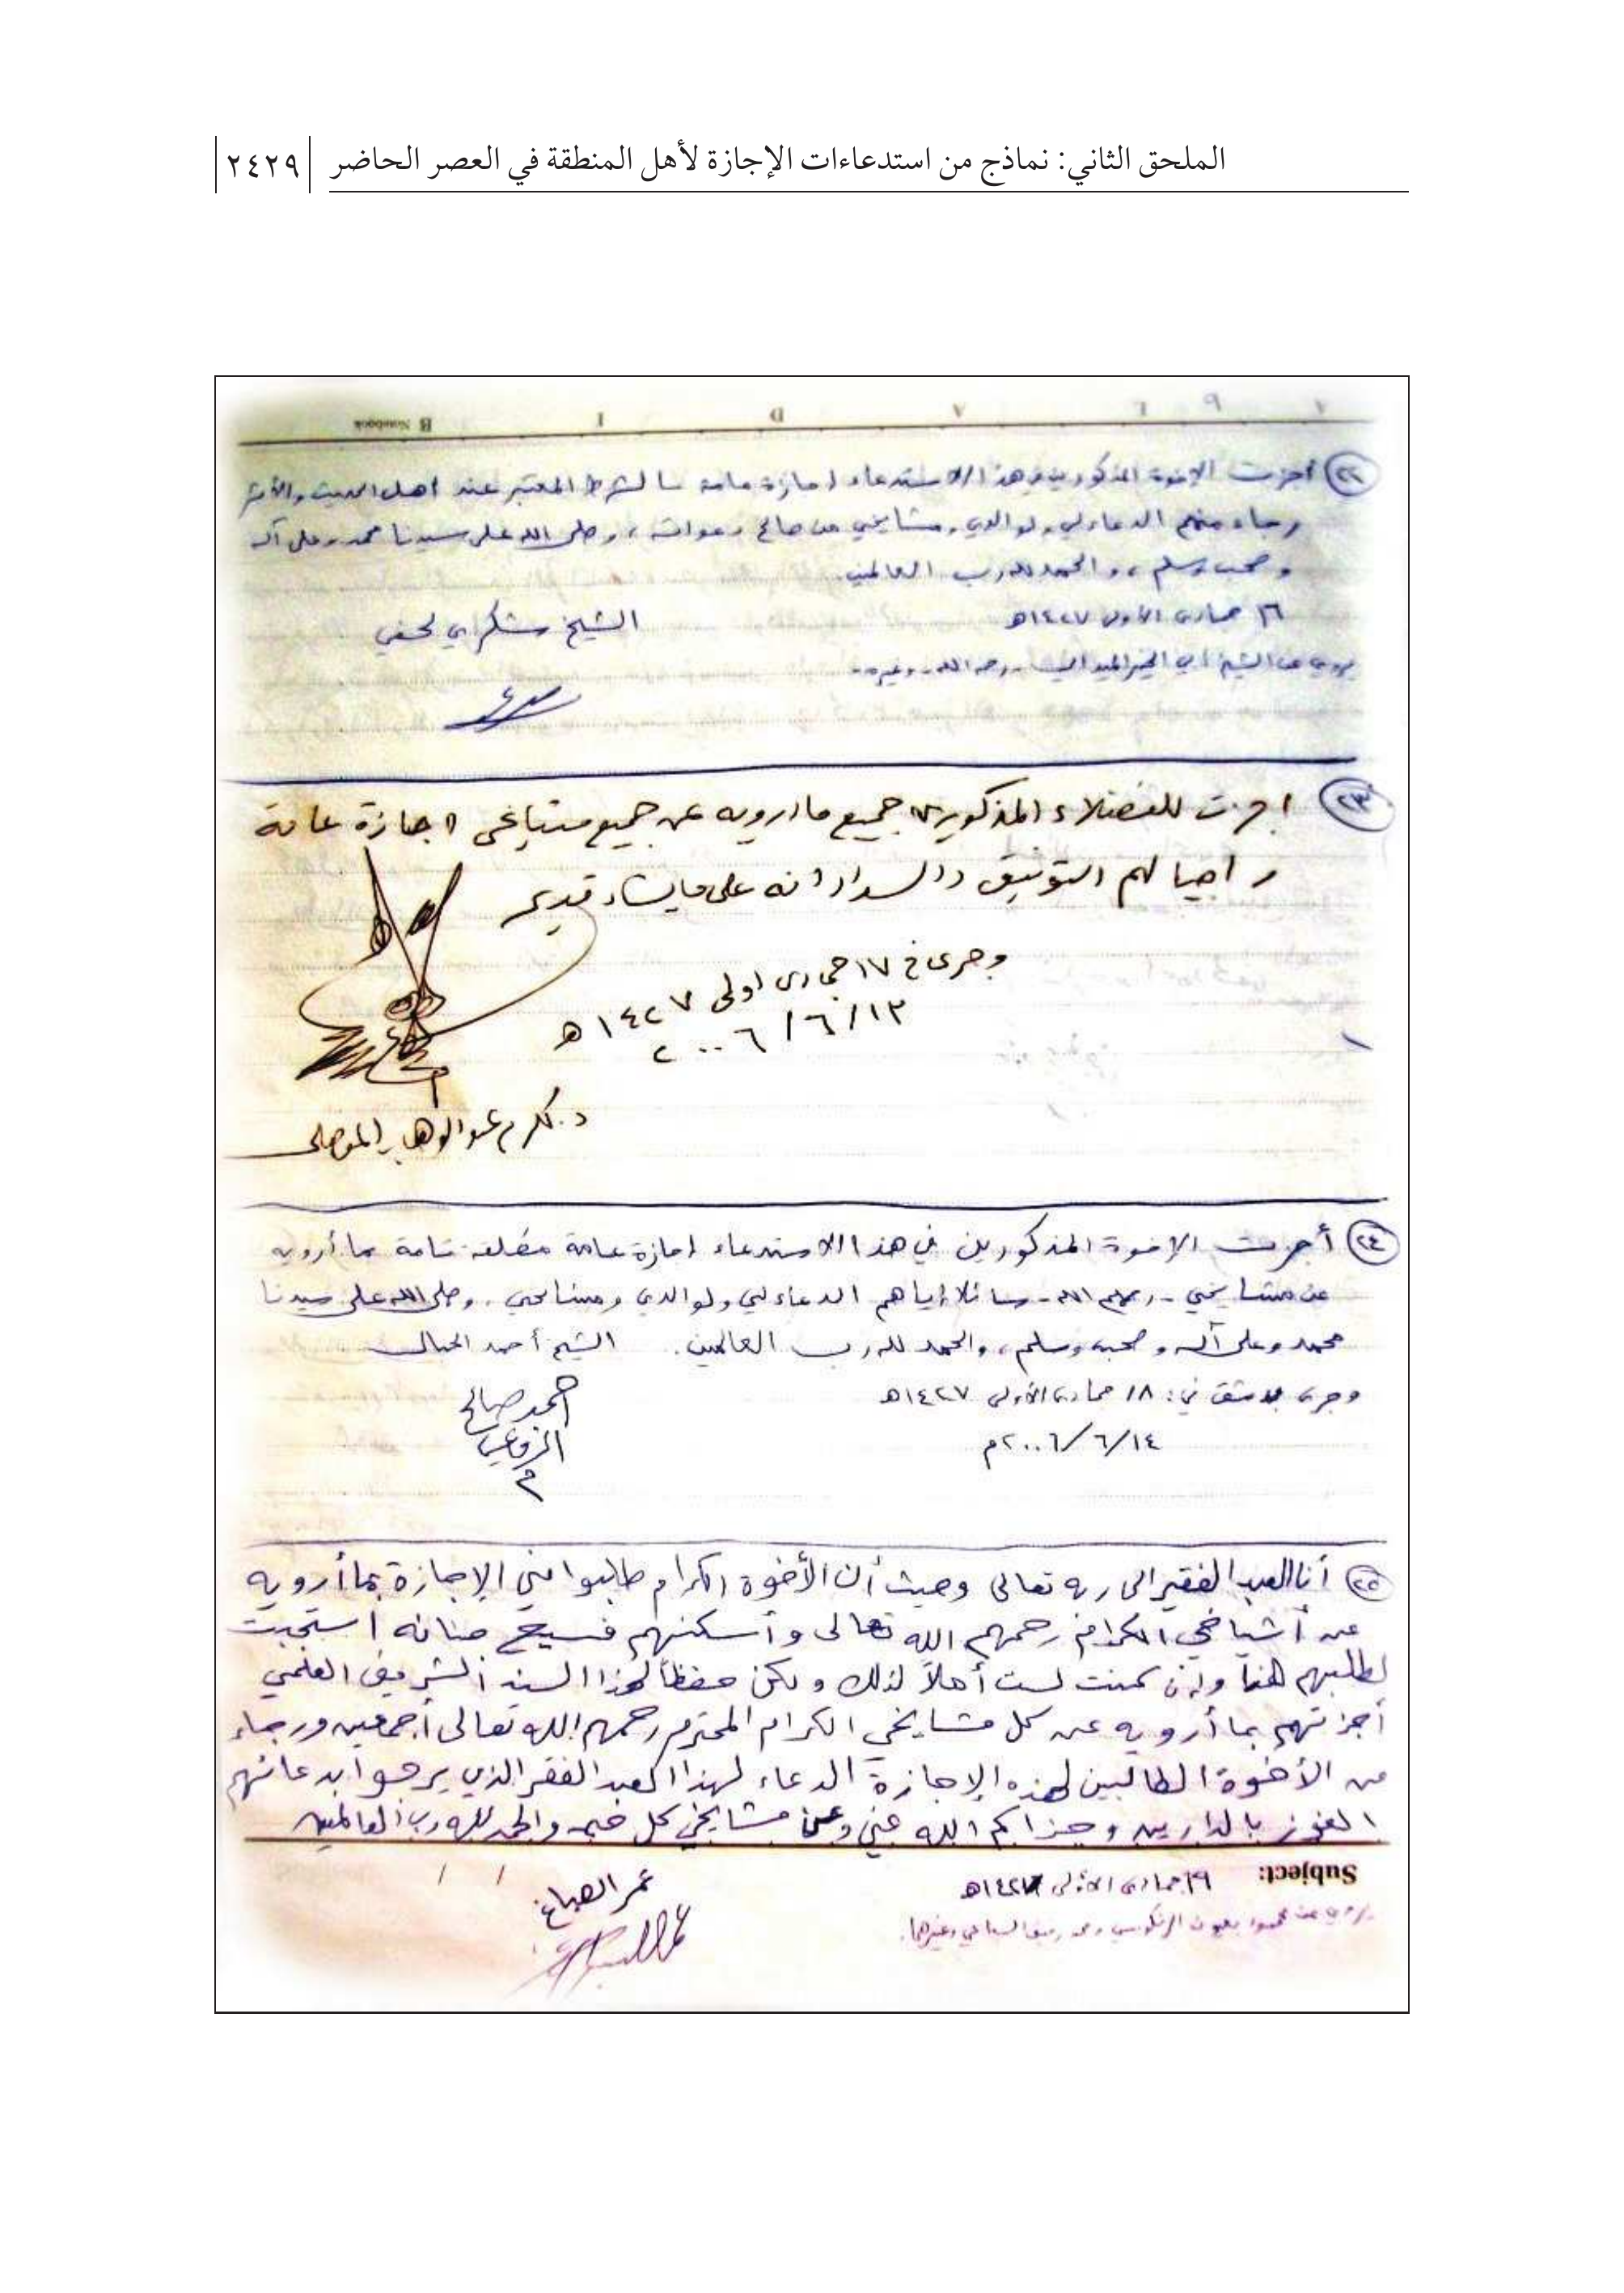 الملحق الثاني: نماذج من استدعاءات الإجازة لأهل المنطقة في العصر الحاضر ٢٤٢٩
B Notebook
٢٢ أجزت الإخوة المذكورين في هذا الاستدعاء إجازة عامة بالشرط المعتبر عند أهل الحديث والأثر
رجاء منهم الدعاء لي ولوالدي ومشايخي من صالح دعواته، وصلى الله على سيدنا محمد وعلى آله
وصحبه وسلم، والحمد لله رب العالمين.
١٦ جمادى الأولى ١٤٢٧هـ
الشيخ شكري لحفي
يروي عن الشيخ أبي الخير الميداني -رحمه الله- وغيره.
٢٣ اجزت للفضلاء المذكورين جميع ما ارويه عن جميع مشايخي اجازة عامة
راجيا لهم التوفيق والسداد انه على ما يشاء قدير
وجرى في ١٧ جمادى اولى ١٤٢٧هـ
١٣/٦/٢٠٠٦
د. عبد الوهاب الموصلي
٢٤ أجزت الإخوة المذكورين في هذا الاستدعاء إجازة عامة مطلقة تامة بما أرويه
عن مشايخي -رحمهم الله- سائلا إياهم الدعاء لي ولوالدي ومشايخي. وصلى الله على سيدنا
محمد وعلى آله وصحبه وسلم، والحمد لله رب العالمين. الشيخ أحمد الحبال
وجرى بدمشق في: ١٨ جمادى الأولى ١٤٢٧هـ
١٤/٦/٢٠٠٦م
أحمد صالح
الرفاعي
٢٥ أنا العبد الفقير الى ربه تعالى وحيث أن الأخوة الكرام طلبوا مني الإجازة بما أرويه
عن أشياخي الكرام رحمهم الله تعالى وأسكنهم فسيح جنانه استجبت
لطلبهم هذا وإن كنت لست أهلاً لذلك ولكن حفظاً لهذا السند الشريف العلمي
أجزتهم بما أرويه عن كل مشايخي الكرام المحترم رحمهم الله تعالى أجمعين ورجاء
من الأخوة الطالبين لهذه الإجازة الدعاء لهذا العبد الفقير الذي يرجوا بدعائهم
الفوز بالدارين وجزاكم الله عني وعن مشايخي كل خير والحمد لله رب العالمين
Subject:
١٩ جمادى الأولى ١٤٢٧هـ
عمر الصباغ
يروي عن محمود بعيون الرنكوسي ومحمد رفيق السباعي وغيرهما.